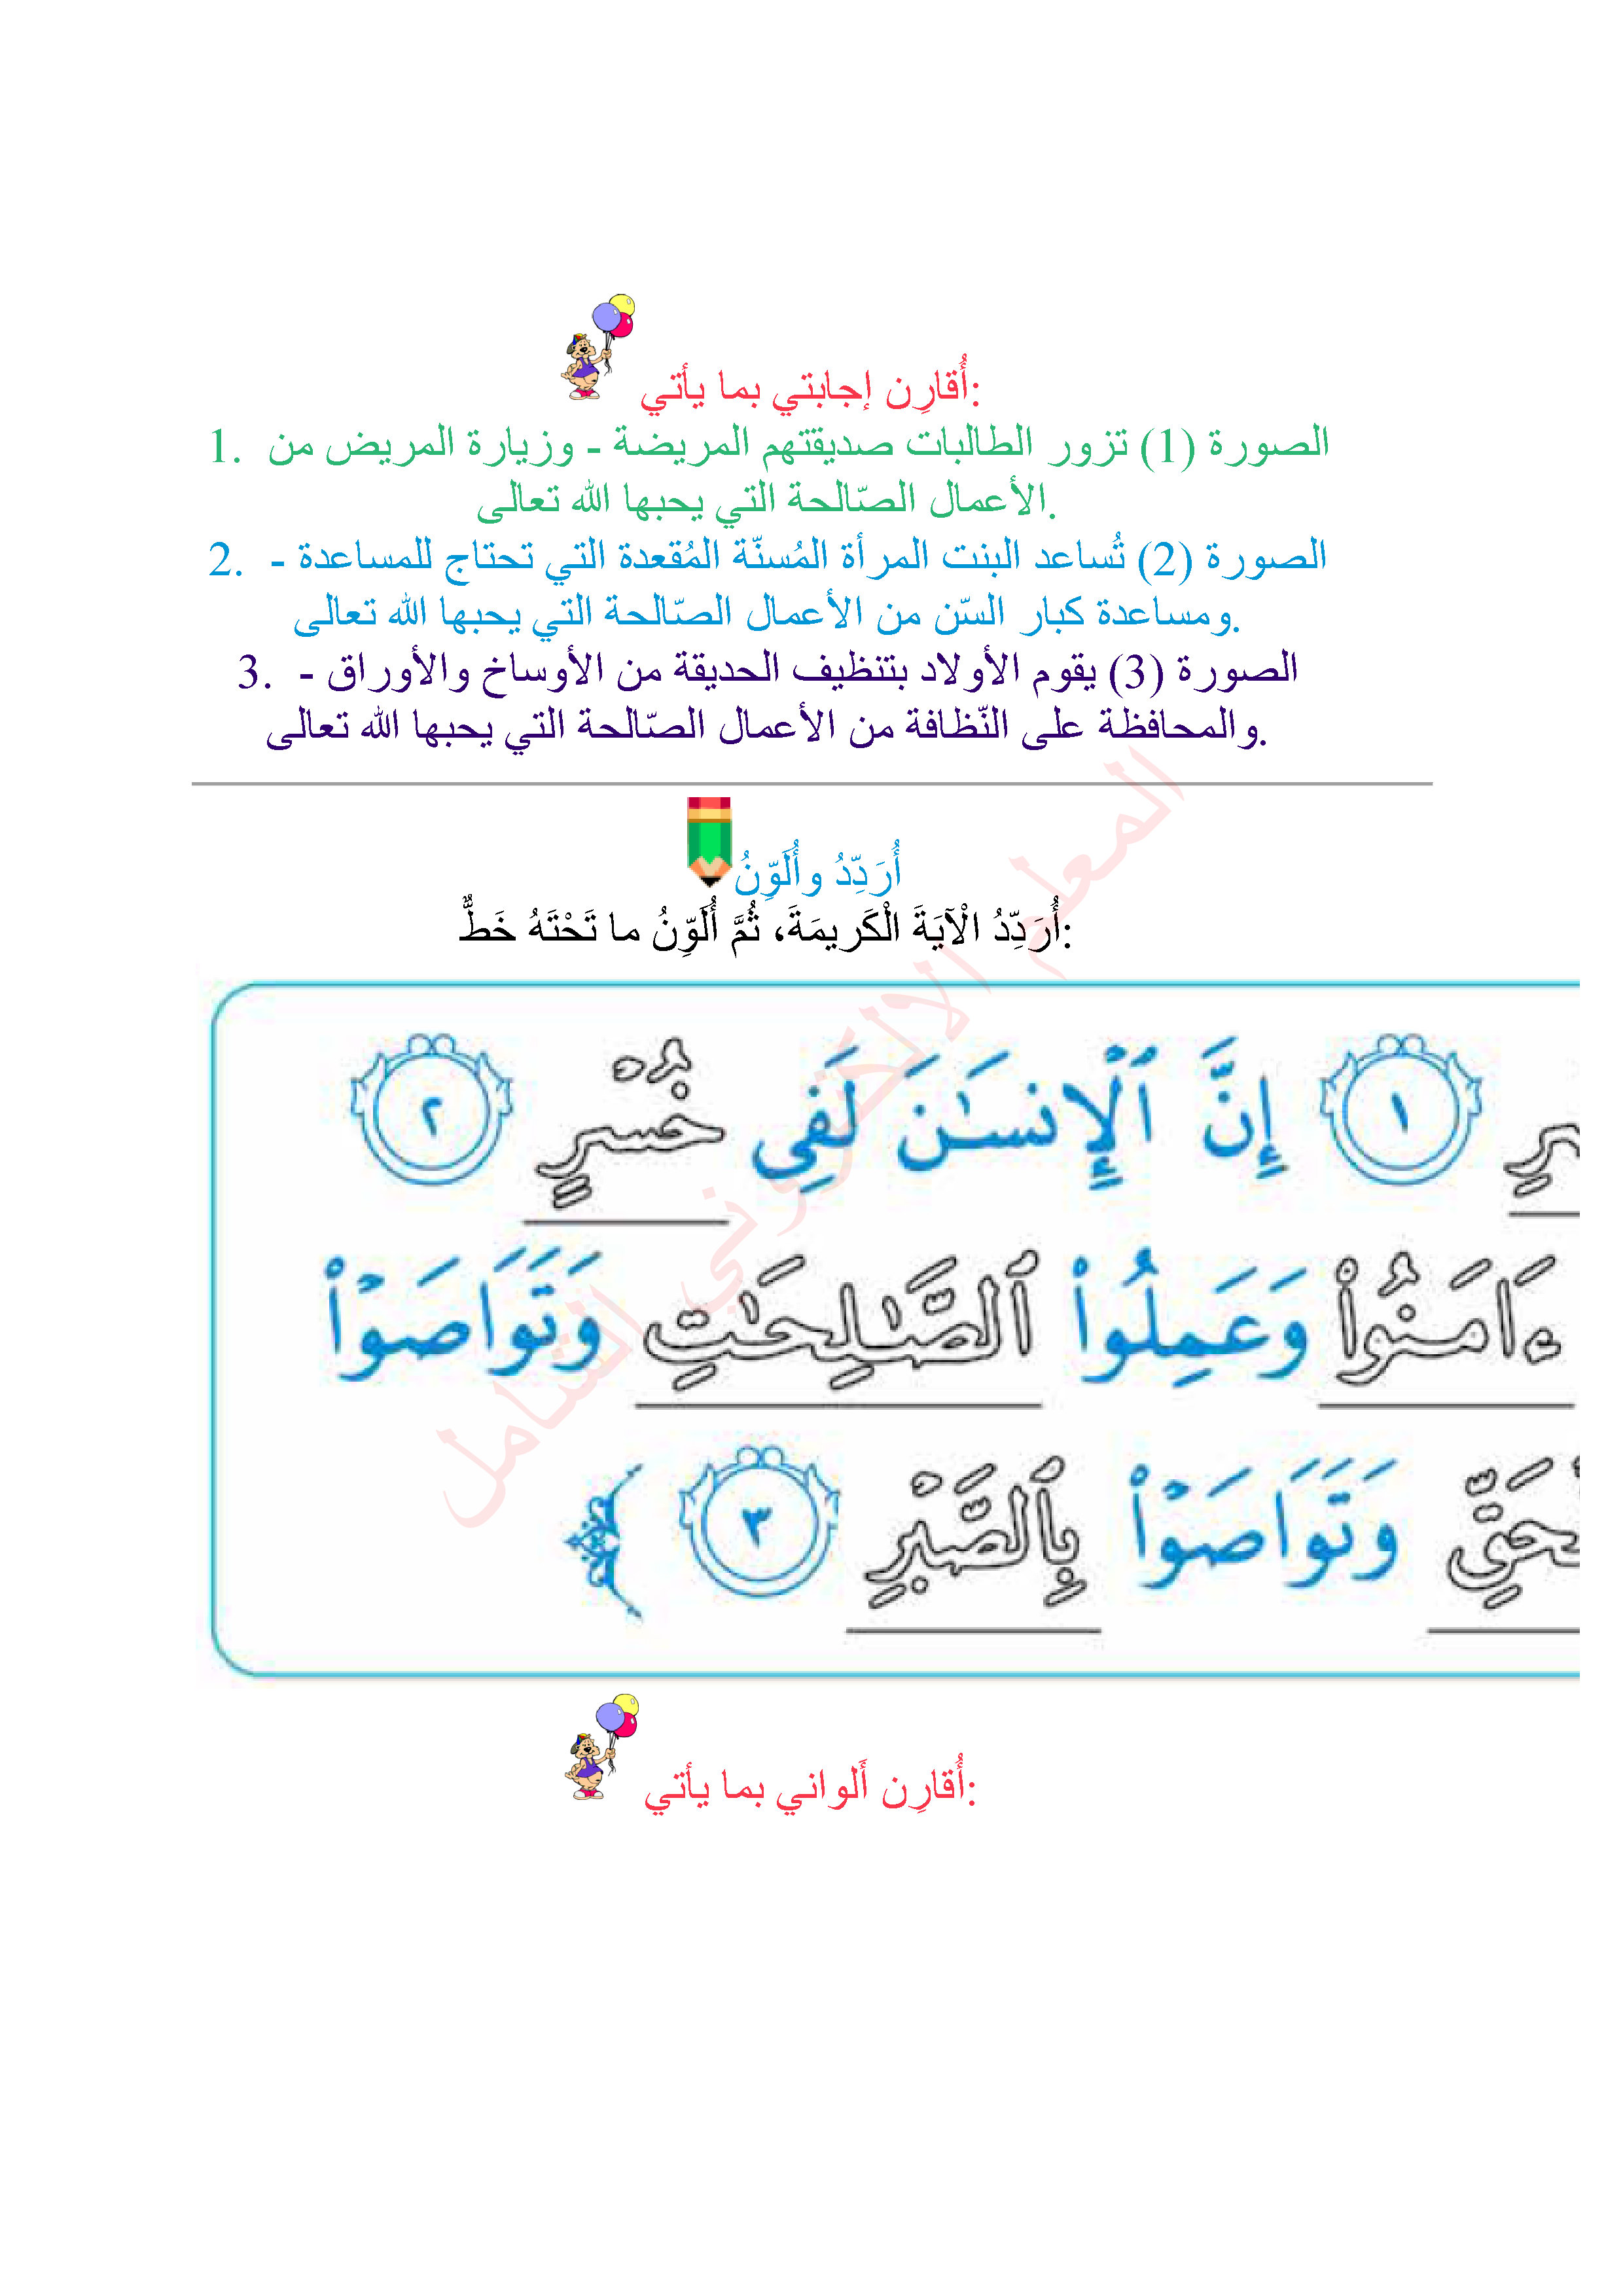 أُقارِن إجابتي بما يأتي:
1. الصورة (1) تزور الطالبات صديقتهم المريضة - وزيارة المريض من
الأعمال الصّالحة التي يحبها الله تعالى.
2. الصورة (2) تُساعد البنت المرأة المُسنّة المُقعدة التي تحتاج للمساعدة -
ومساعدة كبار السّن من الأعمال الصّالحة التي يحبها الله تعالى.
3. الصورة (3) يقوم الأولاد بتنظيف الحديقة من الأوساخ والأوراق -
والمحافظة على النّظافة من الأعمال الصّالحة التي يحبها الله تعالى.
أُرَدِّدُ وأُلَوِّنُ
أُرَدِّدُ الْآيَةَ الْكَريمَةَ، ثُمَّ أُلَوِّنُ ما تَحْتَهُ خَطٌّ:
١ إِنَّ ٱلْإِنسَـٰنَ لَفِى خُسْرٍ ٢
ءَامَنُوا۟ وَعَمِلُوا۟ ٱلصَّـٰلِحَـٰتِ وَتَوَاصَوْا۟
وَتَوَاصَوْا۟ بِٱلصَّبْرِ ٣
أُقارِن أَلواني بما يأتي:
المعلم الالكتروني الشامل